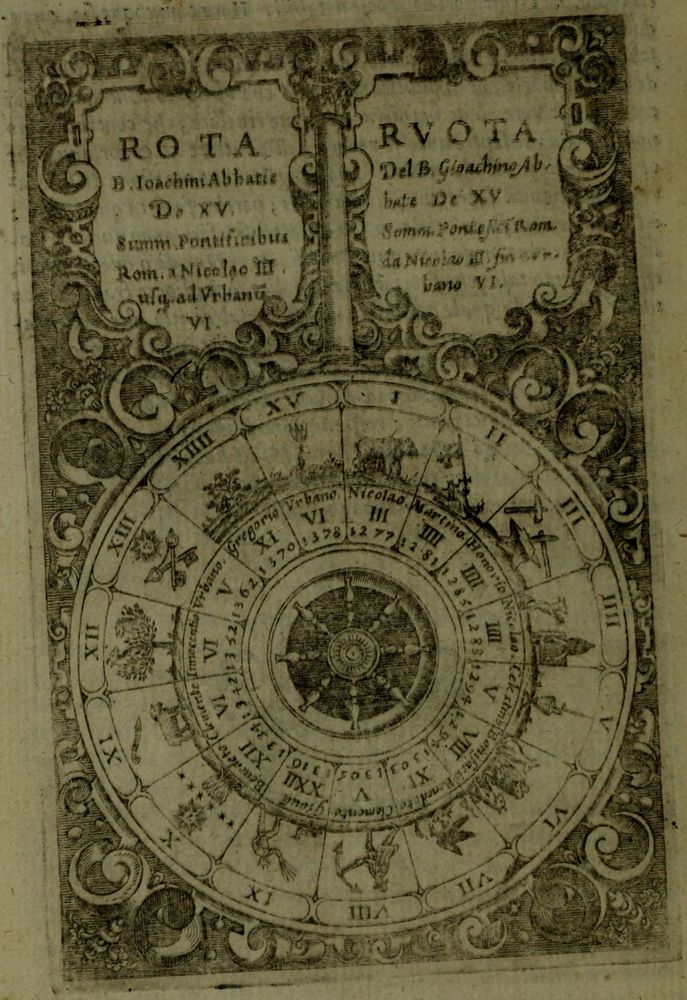 ROTA
B. Ioachini Abbatis
De XV.
Summ. Pontificibus
Rom. a Nicolao III.
usq. ad Vrbanū
VI.
RVOTA
Del B. Gioachino Ab-
bate De XV
Somm. Pontefici Rom.
da Nicolao III. fin a Ur-
bano VI.
I
II
III
IIII
V
VI
VII
VIII
IX
X
XI
XII
XIII
XIIII
XV
Nicolao. III 1277
Martino. IIII 1281
Honorio IIII 1285
Nicolao. IIII 1288
Celestino V 1294
Bonifacio VIII 1294
Benedeto XI 1303
Clemente V 1305
Giouā XXII 1316
Benedeto XII
Clemente VI 1342
Innocentio VI 1352
Vrbano. V 1362
Gregorio XI 1370
Vrbano. VI 1378